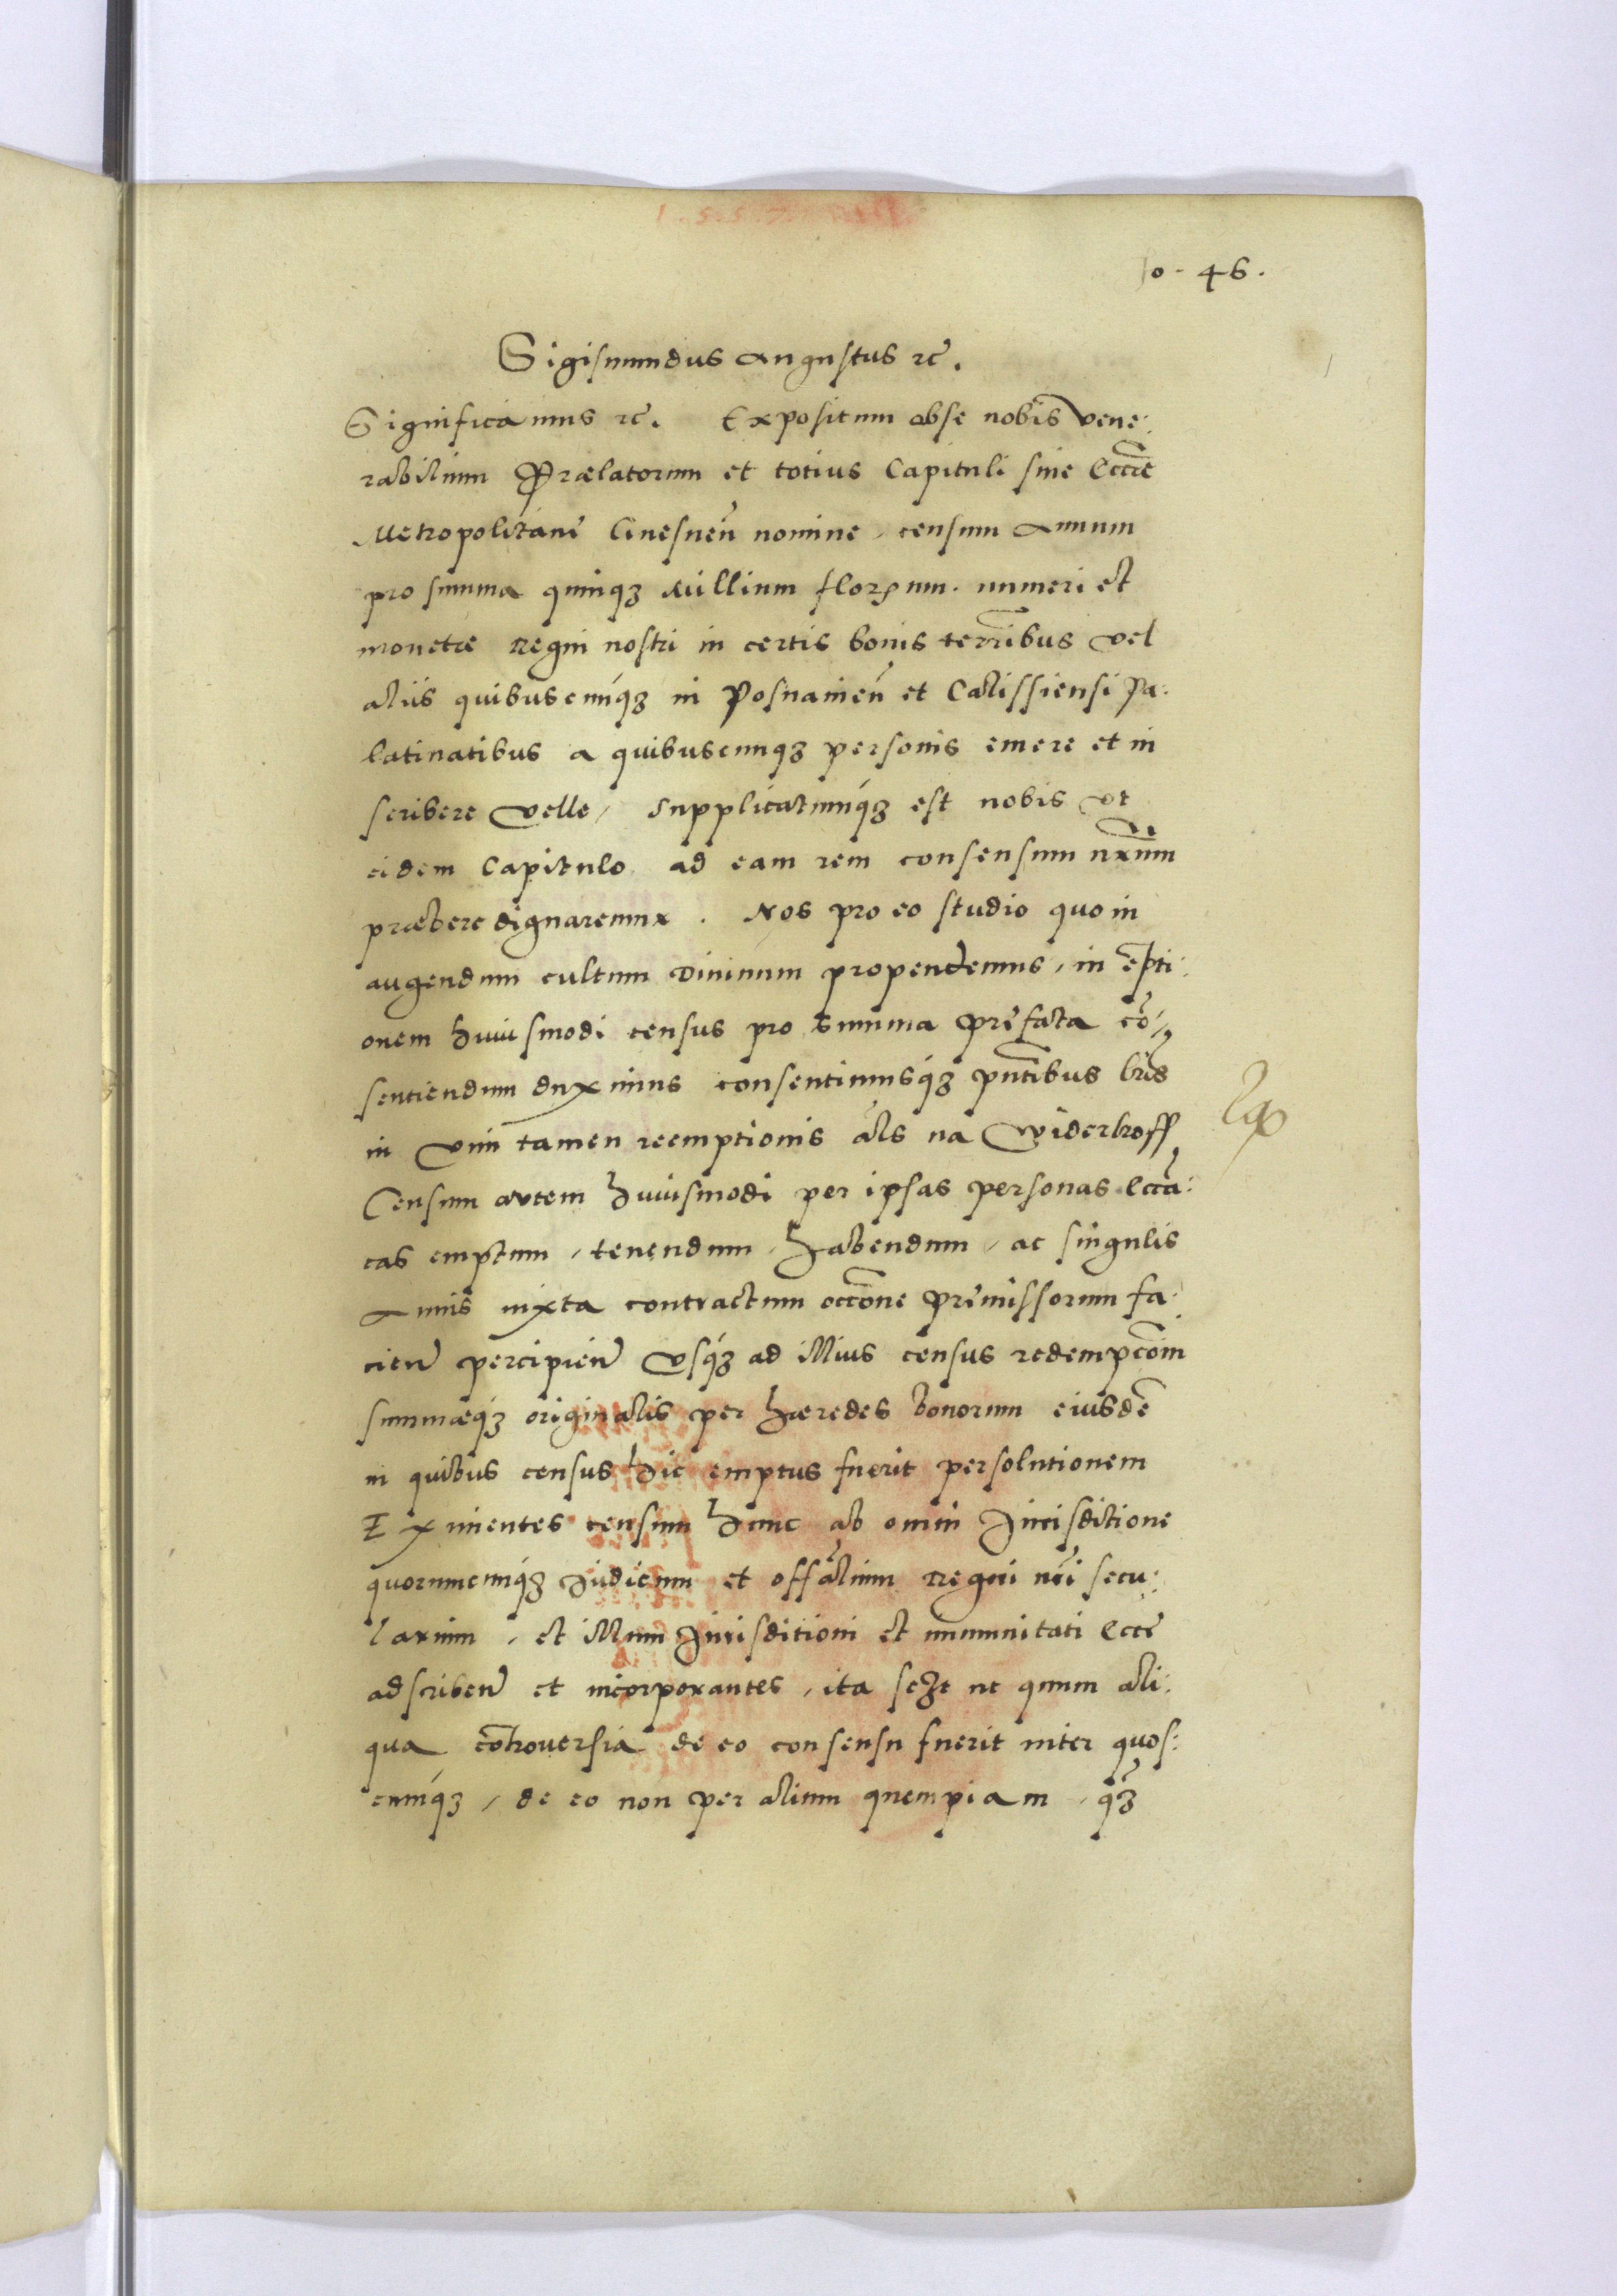 fo. 46.
Sigismundus Augustus etc.
Significamus etc. Expositum esse nobis vene:
rabilium Prælatorum et totius Capituli sive Eccłe
Metropolitane Gnesneñ nomine, censum annum
pro summa quinq3 millium florenum. numeri et
monetæ regni nostri in certis bonis terribus vel
aliis quibuscunq3 in Posnanieñ et Calissiensi Pa:
latinatibus a quibuscunq3 personis emere et in
scribere velle, Supplicatumq3 est nobis vt
eidem Capitulo ad eam rem consensum nrum
præbere dignaremur. Nos pro eo studio quo in
augendum cultum divinum propendemus, in epti:
onem huiusmodi census pro summa prefata cõ:
sentiendum duximus consentimusq3 pntibus lris
in vim tamen reemptionis als na Widerkoff
Censum autem huiusmodi per ipsas personas ecca:
cas emptum, tenendum, habendum, ac singulis
annis iuxta contractum occone premissorum fa:
cien percipien vsq3 ad illius census redempcom
summæq3 originalis per hæredes bonorum eiusdẽ
in quibus census hic emptus fuerit persolutionem
Eximentes censum hunc ab omni Jurisditione
quorumcunq3 Judicum et offalium Regni nri secu:
larium, et illum Jurisditioni et immunitati Eccłe
adscriben et incorporantes, ita sczt ut quum ali:
qua cotroversia de eo consensu fuerit inter quos:
cumq3, de eo non per alium quempiam, q3